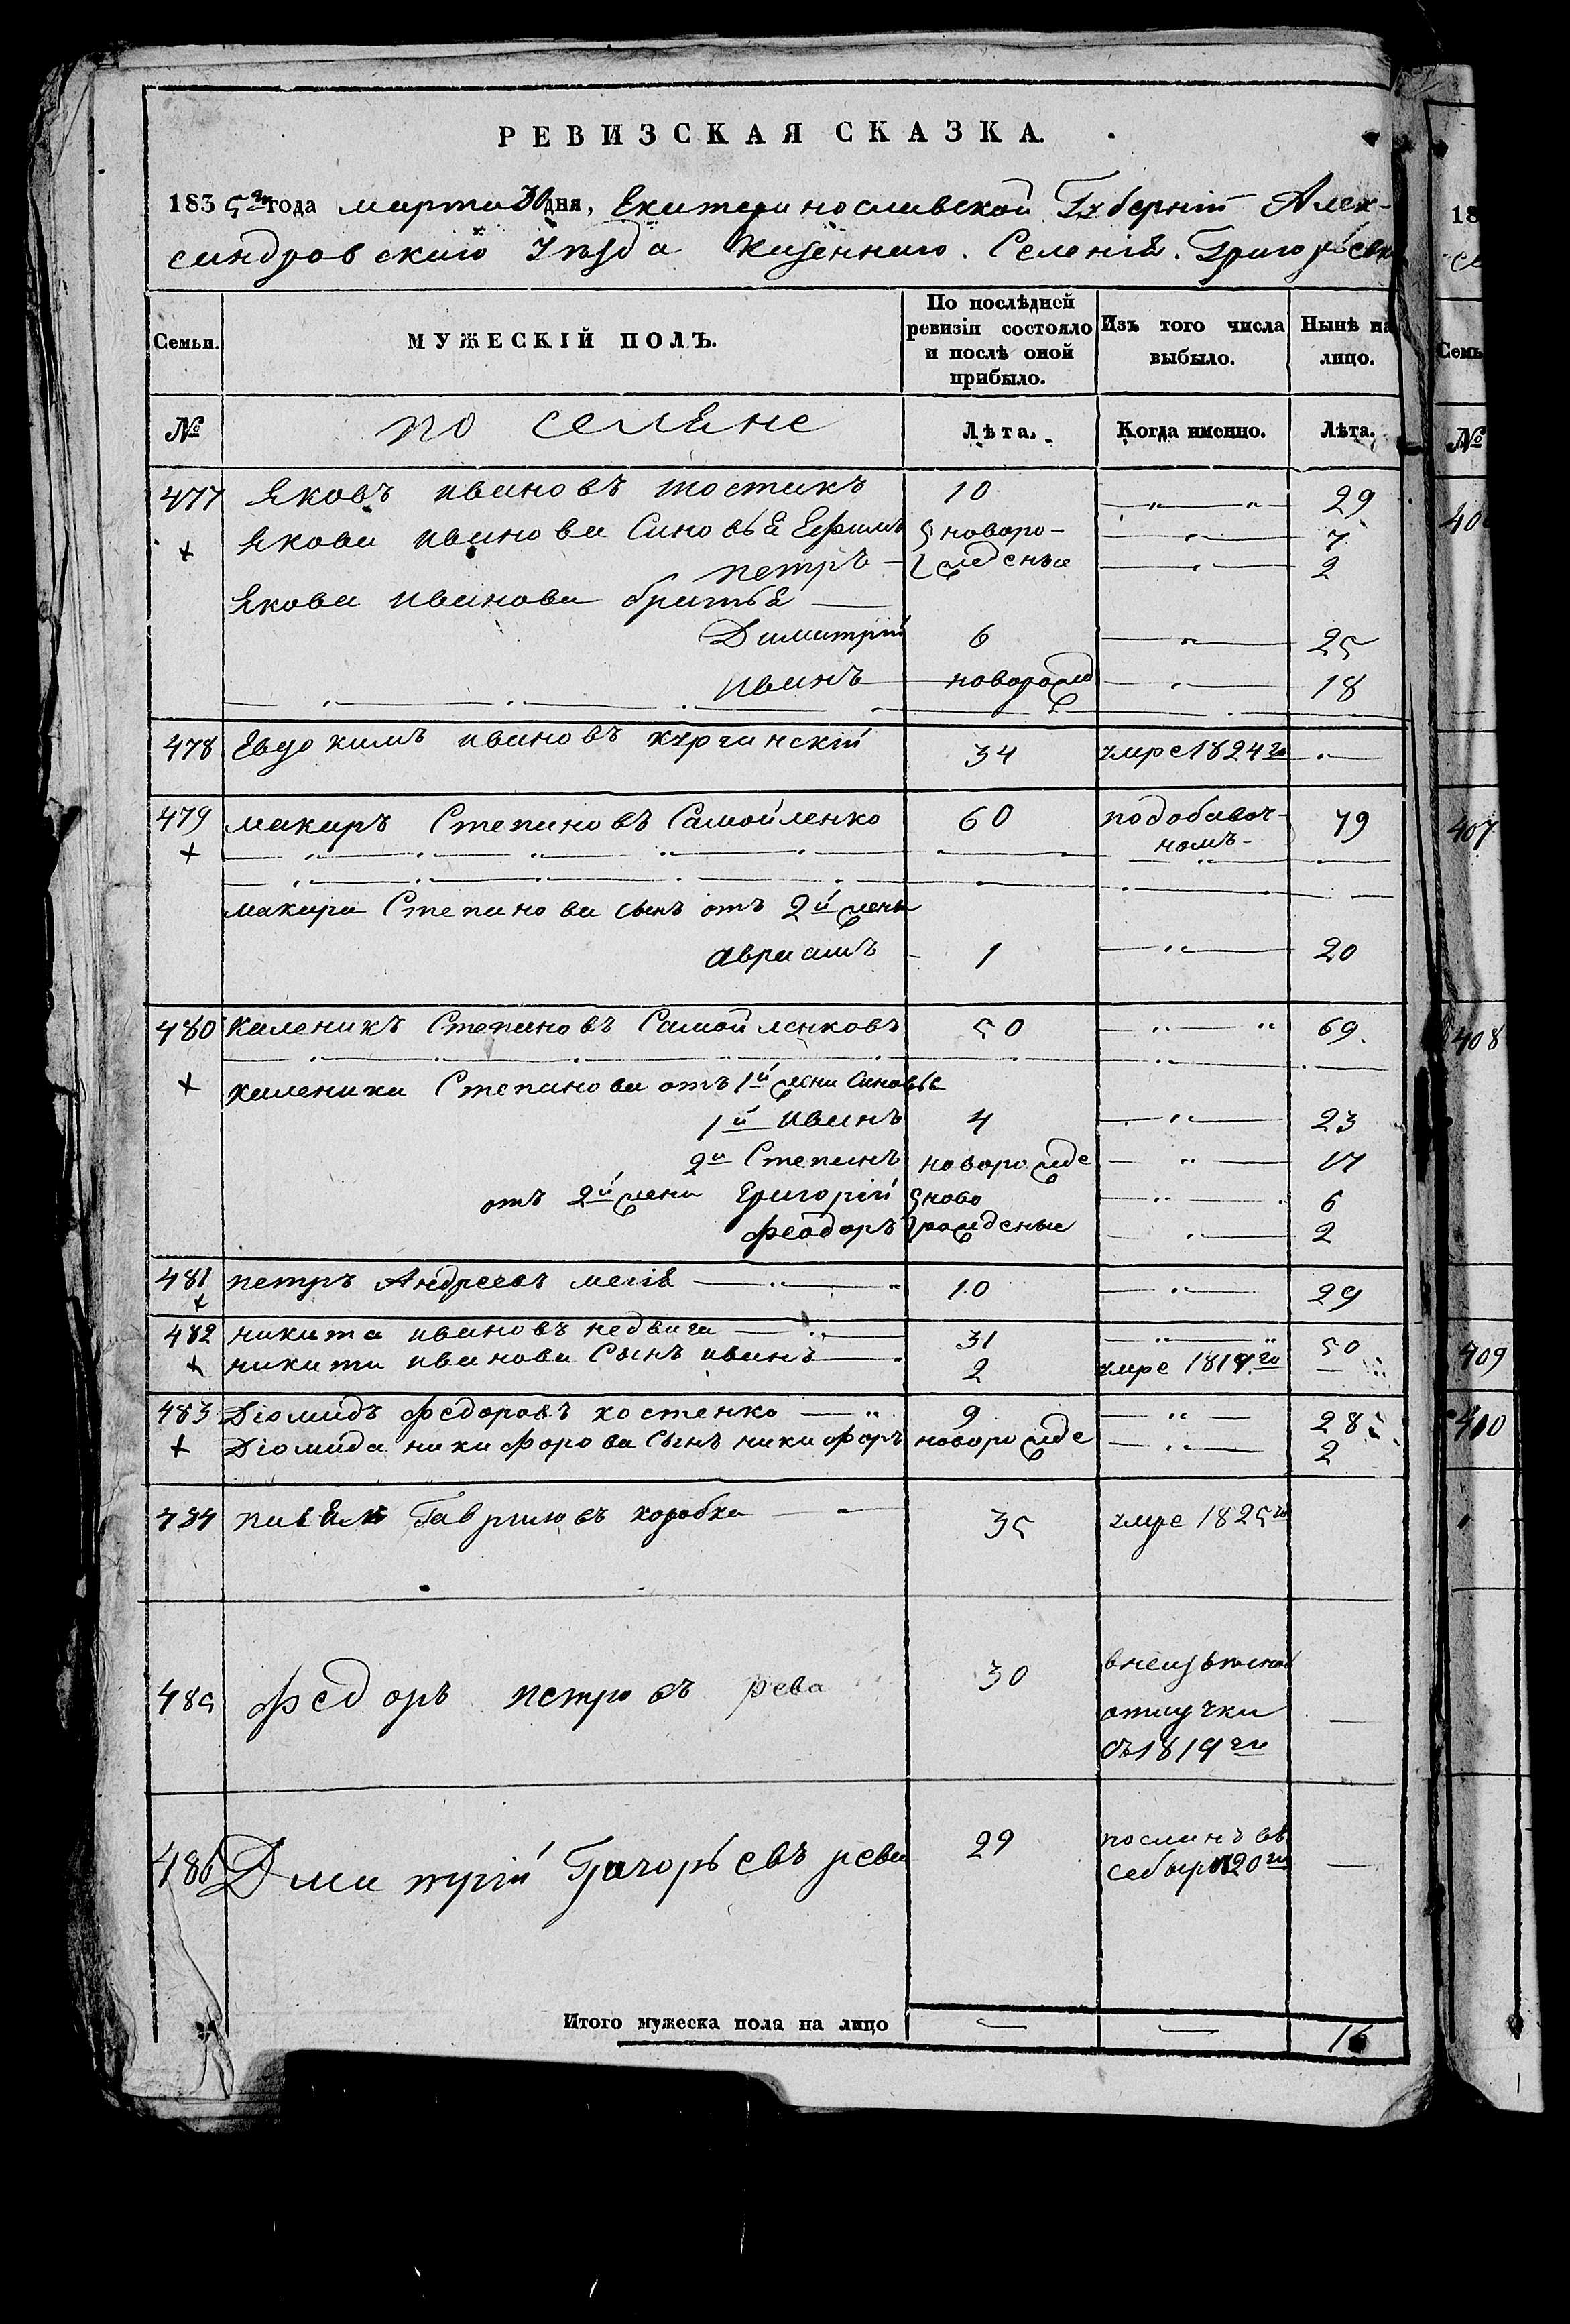 РЕВИЗСКАЯ СКАЗКА.
1835го года марта 30 дня, Екатеринославской Губерніи Алек-
сандровскаго Уезда Казеннаго. Селенія. Григорьевк
Семьи.
МУЖЕСКІЙ ПОЛЪ.
По послѣдней ревизіи состояло и послѣ оной прибыло.
Изъ того числа выбыло.
Нынѣ на лицо.
№
по селяне
Лѣта.
Когда именно.
Лѣта.
477 Яковъ ивановъ костикъ 10 29
Якова иванова Синовья Ефимъ новоро- 7
петръ жденые 2
Якова иванова братья
Димитрій 6 25
иванъ новорожд 18
478 Евдокимъ ивановъ курганскій 34 умре 1824го
479 макаръ Степановъ Самойленко 60 подобавоч- 79
номъ
макара Степанова сынъ отъ 2й жены
авраамъ 1 20
480 каленикъ Степановъ Самойленковъ 50 69
каленика Степанова отъ 1й жени Синовья
1й иванъ 4 23
2й Степанъ новорожде 17
отъ 2й жени Григорій ново 6
феодоръ рожденые 2
481 петръ Андреевъ 10 29
482 никита ивановъ недвига 31 50
никити иванова Сынъ иванъ 2 умре 1819го
483 Діомидъ федоровъ костенко 9 28
Діомида никифорова Сынъ никифоръ новорожде 2
484 павелъ Гавриловъ коробка 35 умре 1825го
485 федоръ петровъ рева 30
отлучки
съ 1819го
486 Дмитрій Григорьевъ рева 29 посланъ въ
себыр 20го
Итого мужеска пола на лицо 16
18
Семь
№
407
408
409
410